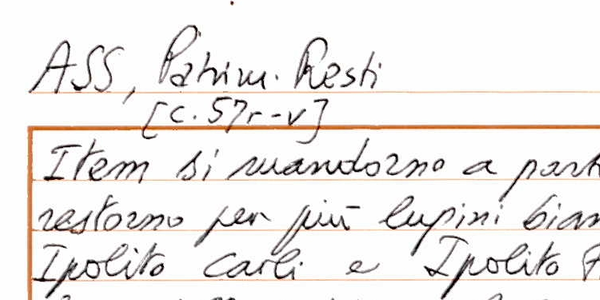 ASS, Patrim. Resti
[c. 57r-v]
Item si mandorno a part
restorno per più lupini bian
Ipolito Carli e Ipolito